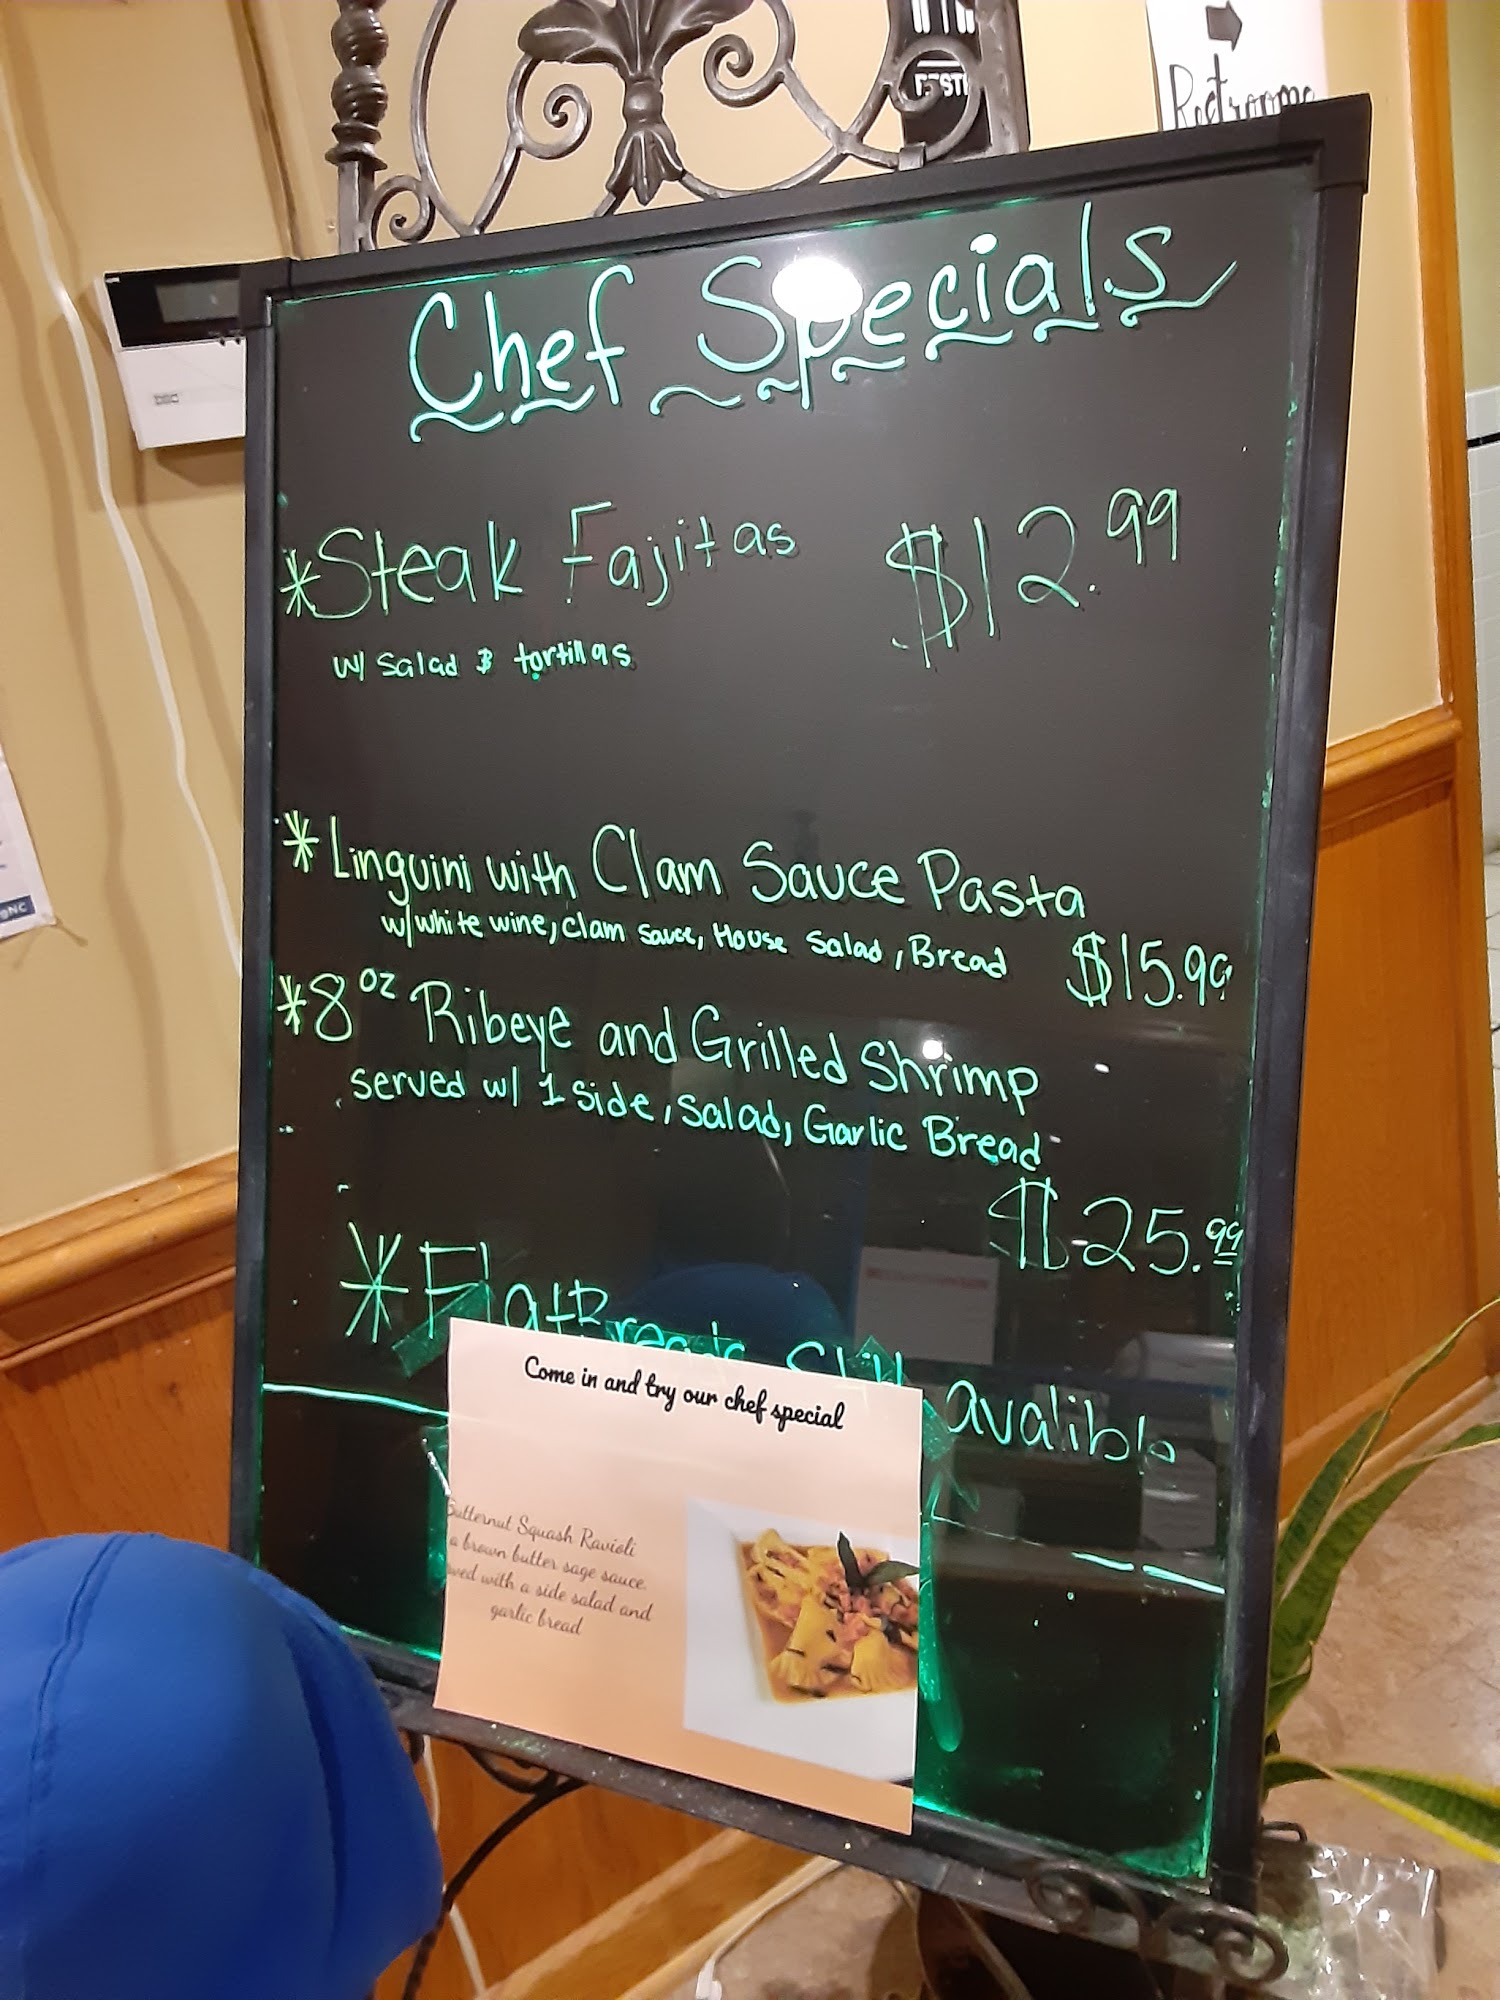 Restrooms
Chef Specials
*Steak Fajitas $12.99
w/ salad & tortillas
*Linguini with Clam Sauce Pasta
w/white wine, clam sauce, House Salad, Bread $15.99
*8oz Ribeye and Grilled Shrimp
served w/ 1 side, salad, Garlic Bread
$25.99
*FlatBreads Still avalible
Come in and try our chef special
Butternut Squash Ravioli
a brown butter sage sauce.
with a side salad and
garlic bread
DSC